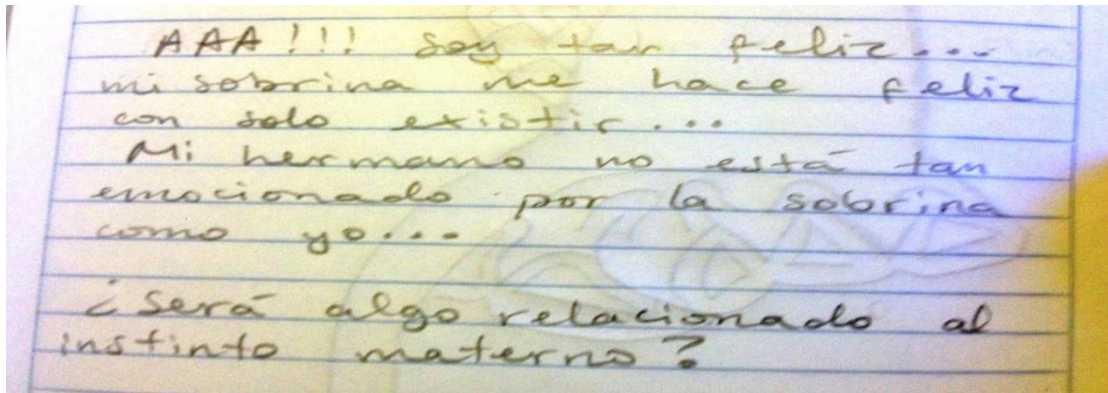 AAA!!! Soy tan feliz...
mi sobrina me hace feliz
con solo existir...
Mi hermano no está tan
emocionado por la sobrina
como yo...
¿Será algo relacionado al
instinto materno?